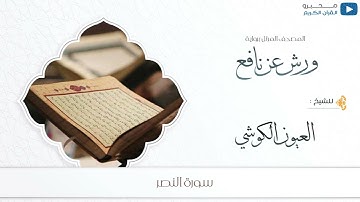 محبرو
القرآن الكريم
المصحف المرتل برواية
ورش عن نافع
للشيخ :
العيون الكوشي
سورة النصر